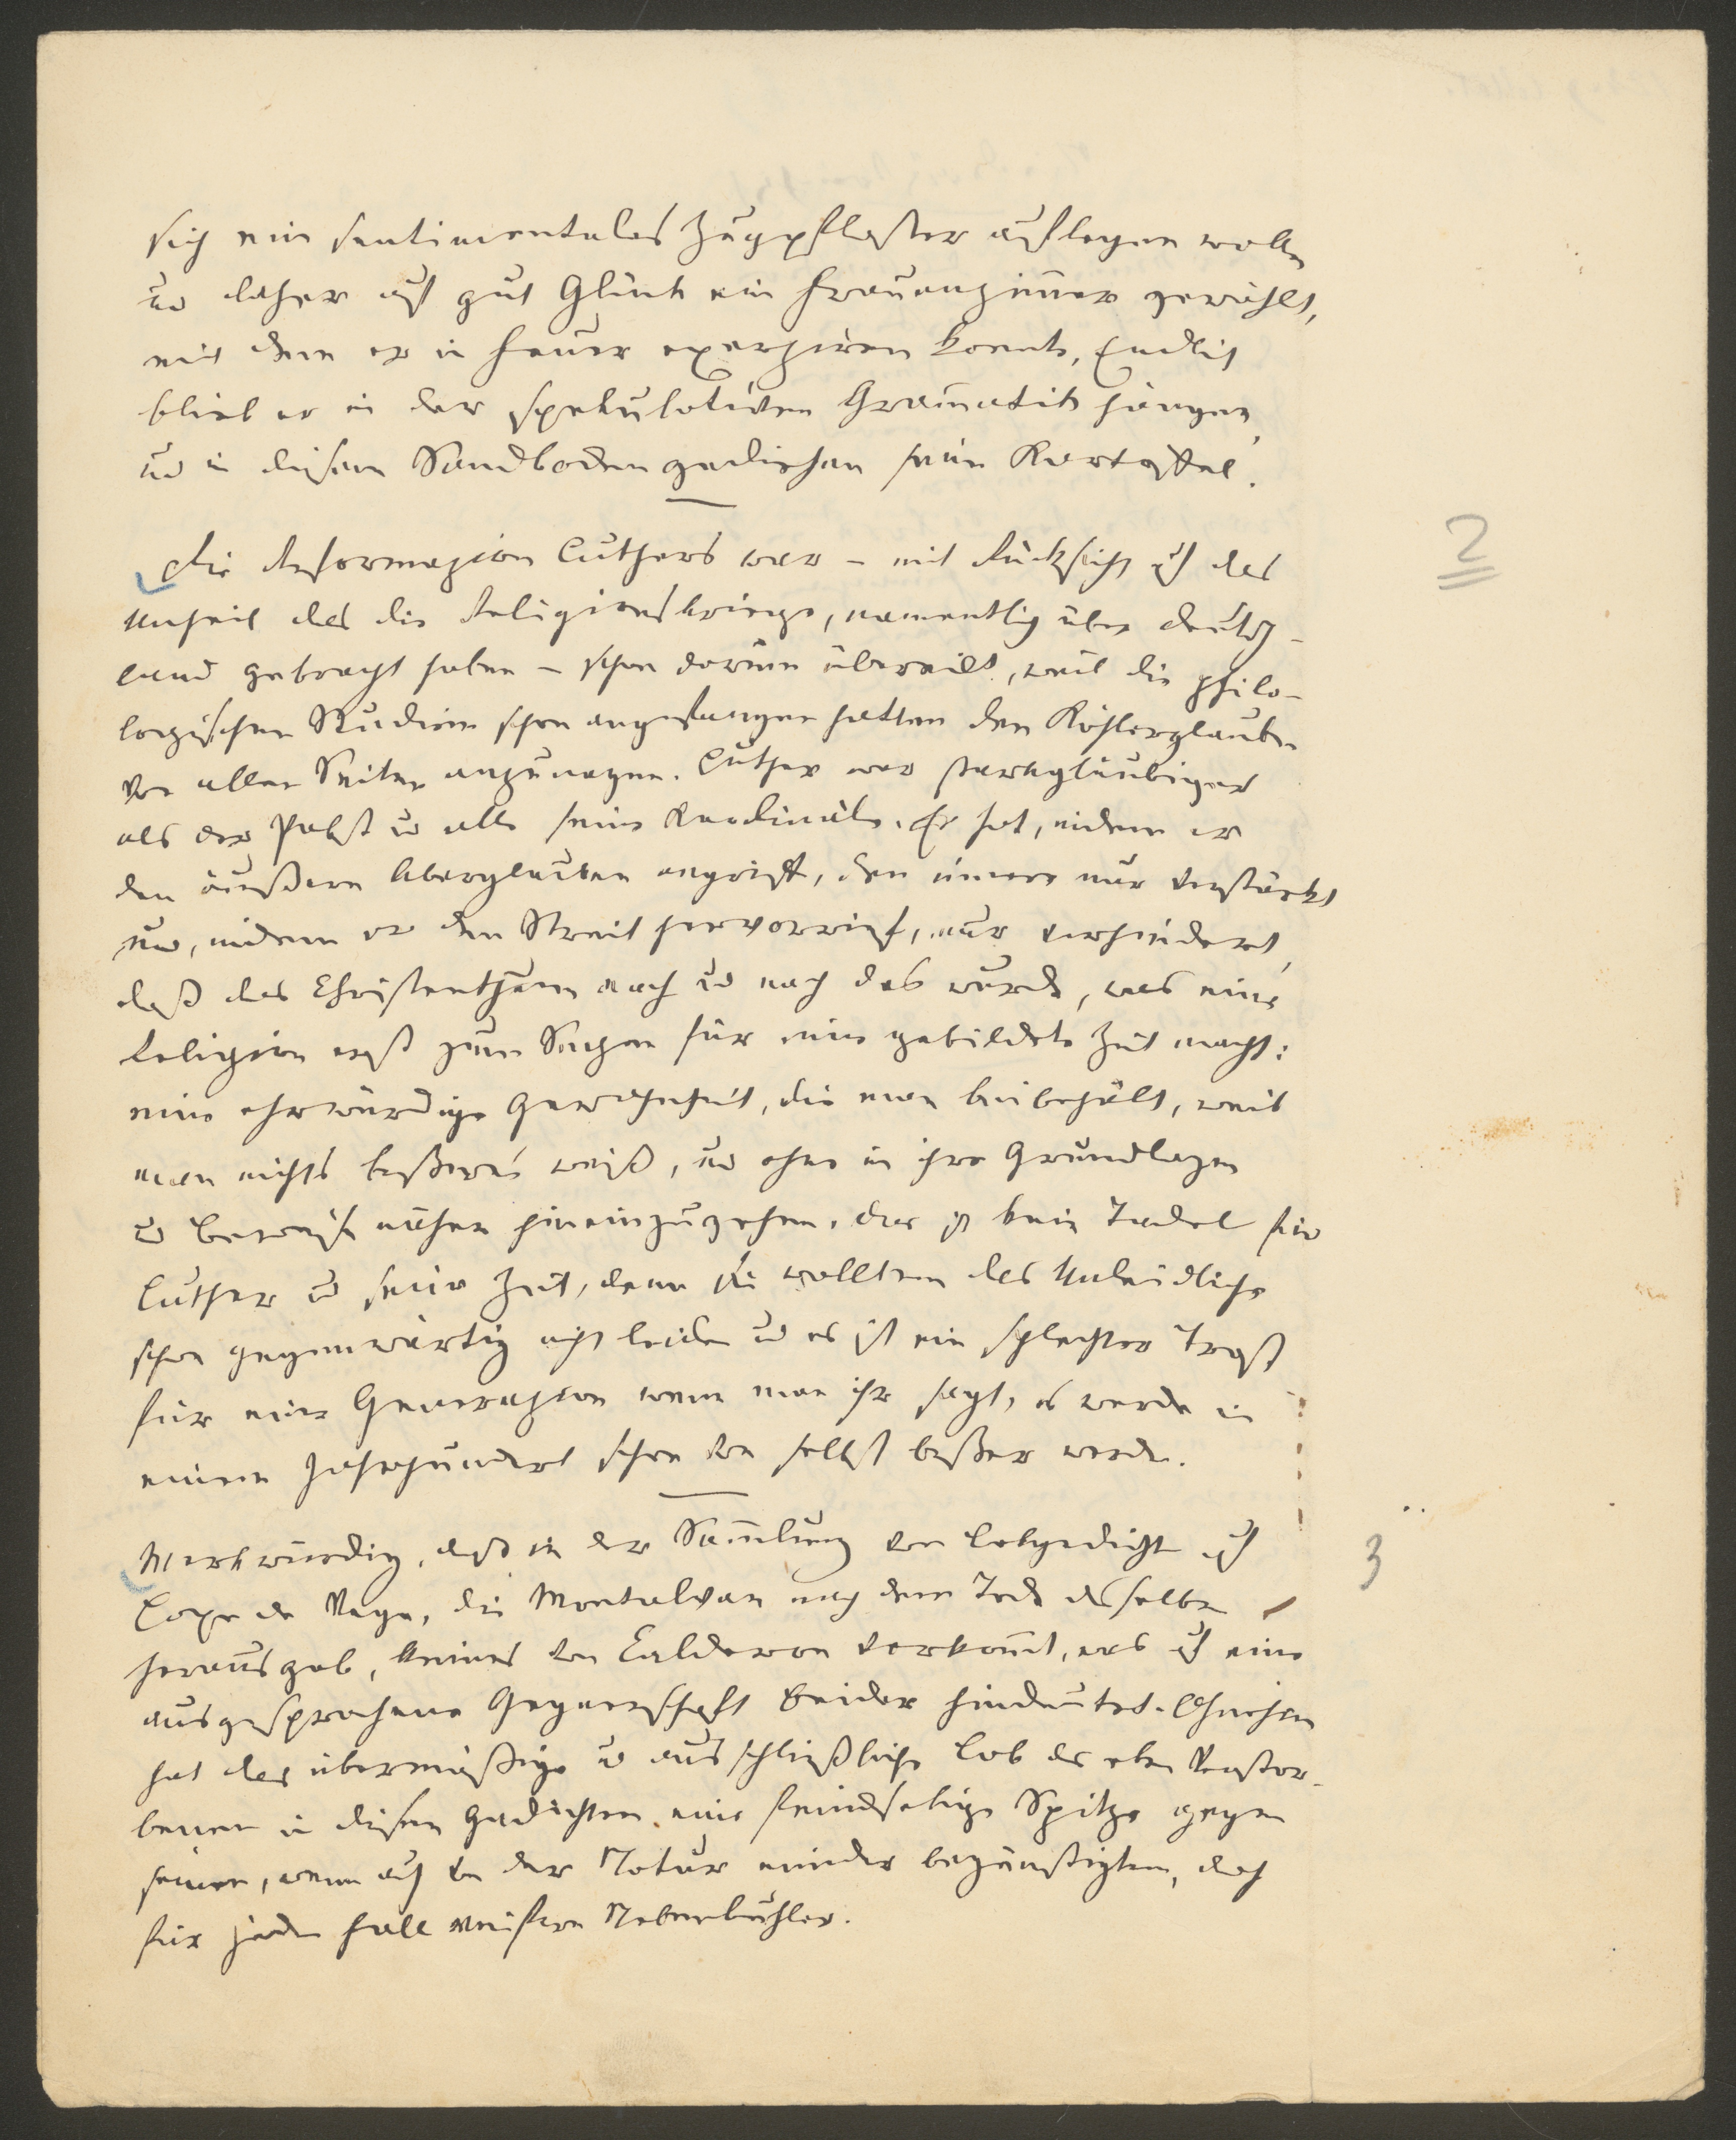 sich ein sentimentales Zugpflaster auflegen wollen
u daher auf gut Glück ein Frauenzimmer gewählt,
mit dem er in Feuer exerziren konnte, Endlich
blieb er in der spekulativen Gram̄atik hängen,
u in diesem Sandboden gediehen seine Kartoffel.
2
Die Reformazion Luthers war – mit Rücksicht auf das
Unheil das die Religionskriege, namentlich über Deutsch-
land gebracht haben – schon darum übereilt, weil die philo-
logischen Studien schon angefangen hatten den Köhlerglauben
von allen Seiten anzunagen. Luther war starkgläubiger
als der Pabst u alle seine Kardinäle. Er hat, indem er
den äußern Aberglauben angriff, den innern nur verstärkt
und, indem er den Streit hervorrief, nur verhindert,
daß das Christenthum nach u nach das wurde, was eine
Religion erst zum Segen für eine gebildete Zeit macht:
eine ehrwürdige Gewohnheit, die man beibehält, weil
man nichts beßeres weiß, u ohne in ihre Grundlagen
u Beweise näher hineinzugehen. Das ist kein Tadel für
Luther u seine Zeit, denn sie wollten das Unleidliche
schon gegenwärtig nicht leiden u es ist ein schlechter Trost
für eine Generazion wenn man ihr sagt, es werde in
einem Jahrhundert schon von selbst beßer werden.
3
Merkwürdig, daß in der Sam̄lung von Lobgedichten auf
Lope de Vega, die Montalvan nach dem Tode desselben
herausgab, keines von Calderon vorkom̄t, was auf eine
ausgesprochene Gegnerschaft beider hindeutet. Ohnehin
hat das übermäßige u ausschließliche Lob des eben Verstor-
benen in diesen Gedichten eine feindselige Spitze gegen
seinen, wenn auch von der Natur minder begünstigten, doch
für jeden Fall weiseren Nebenbuhler.